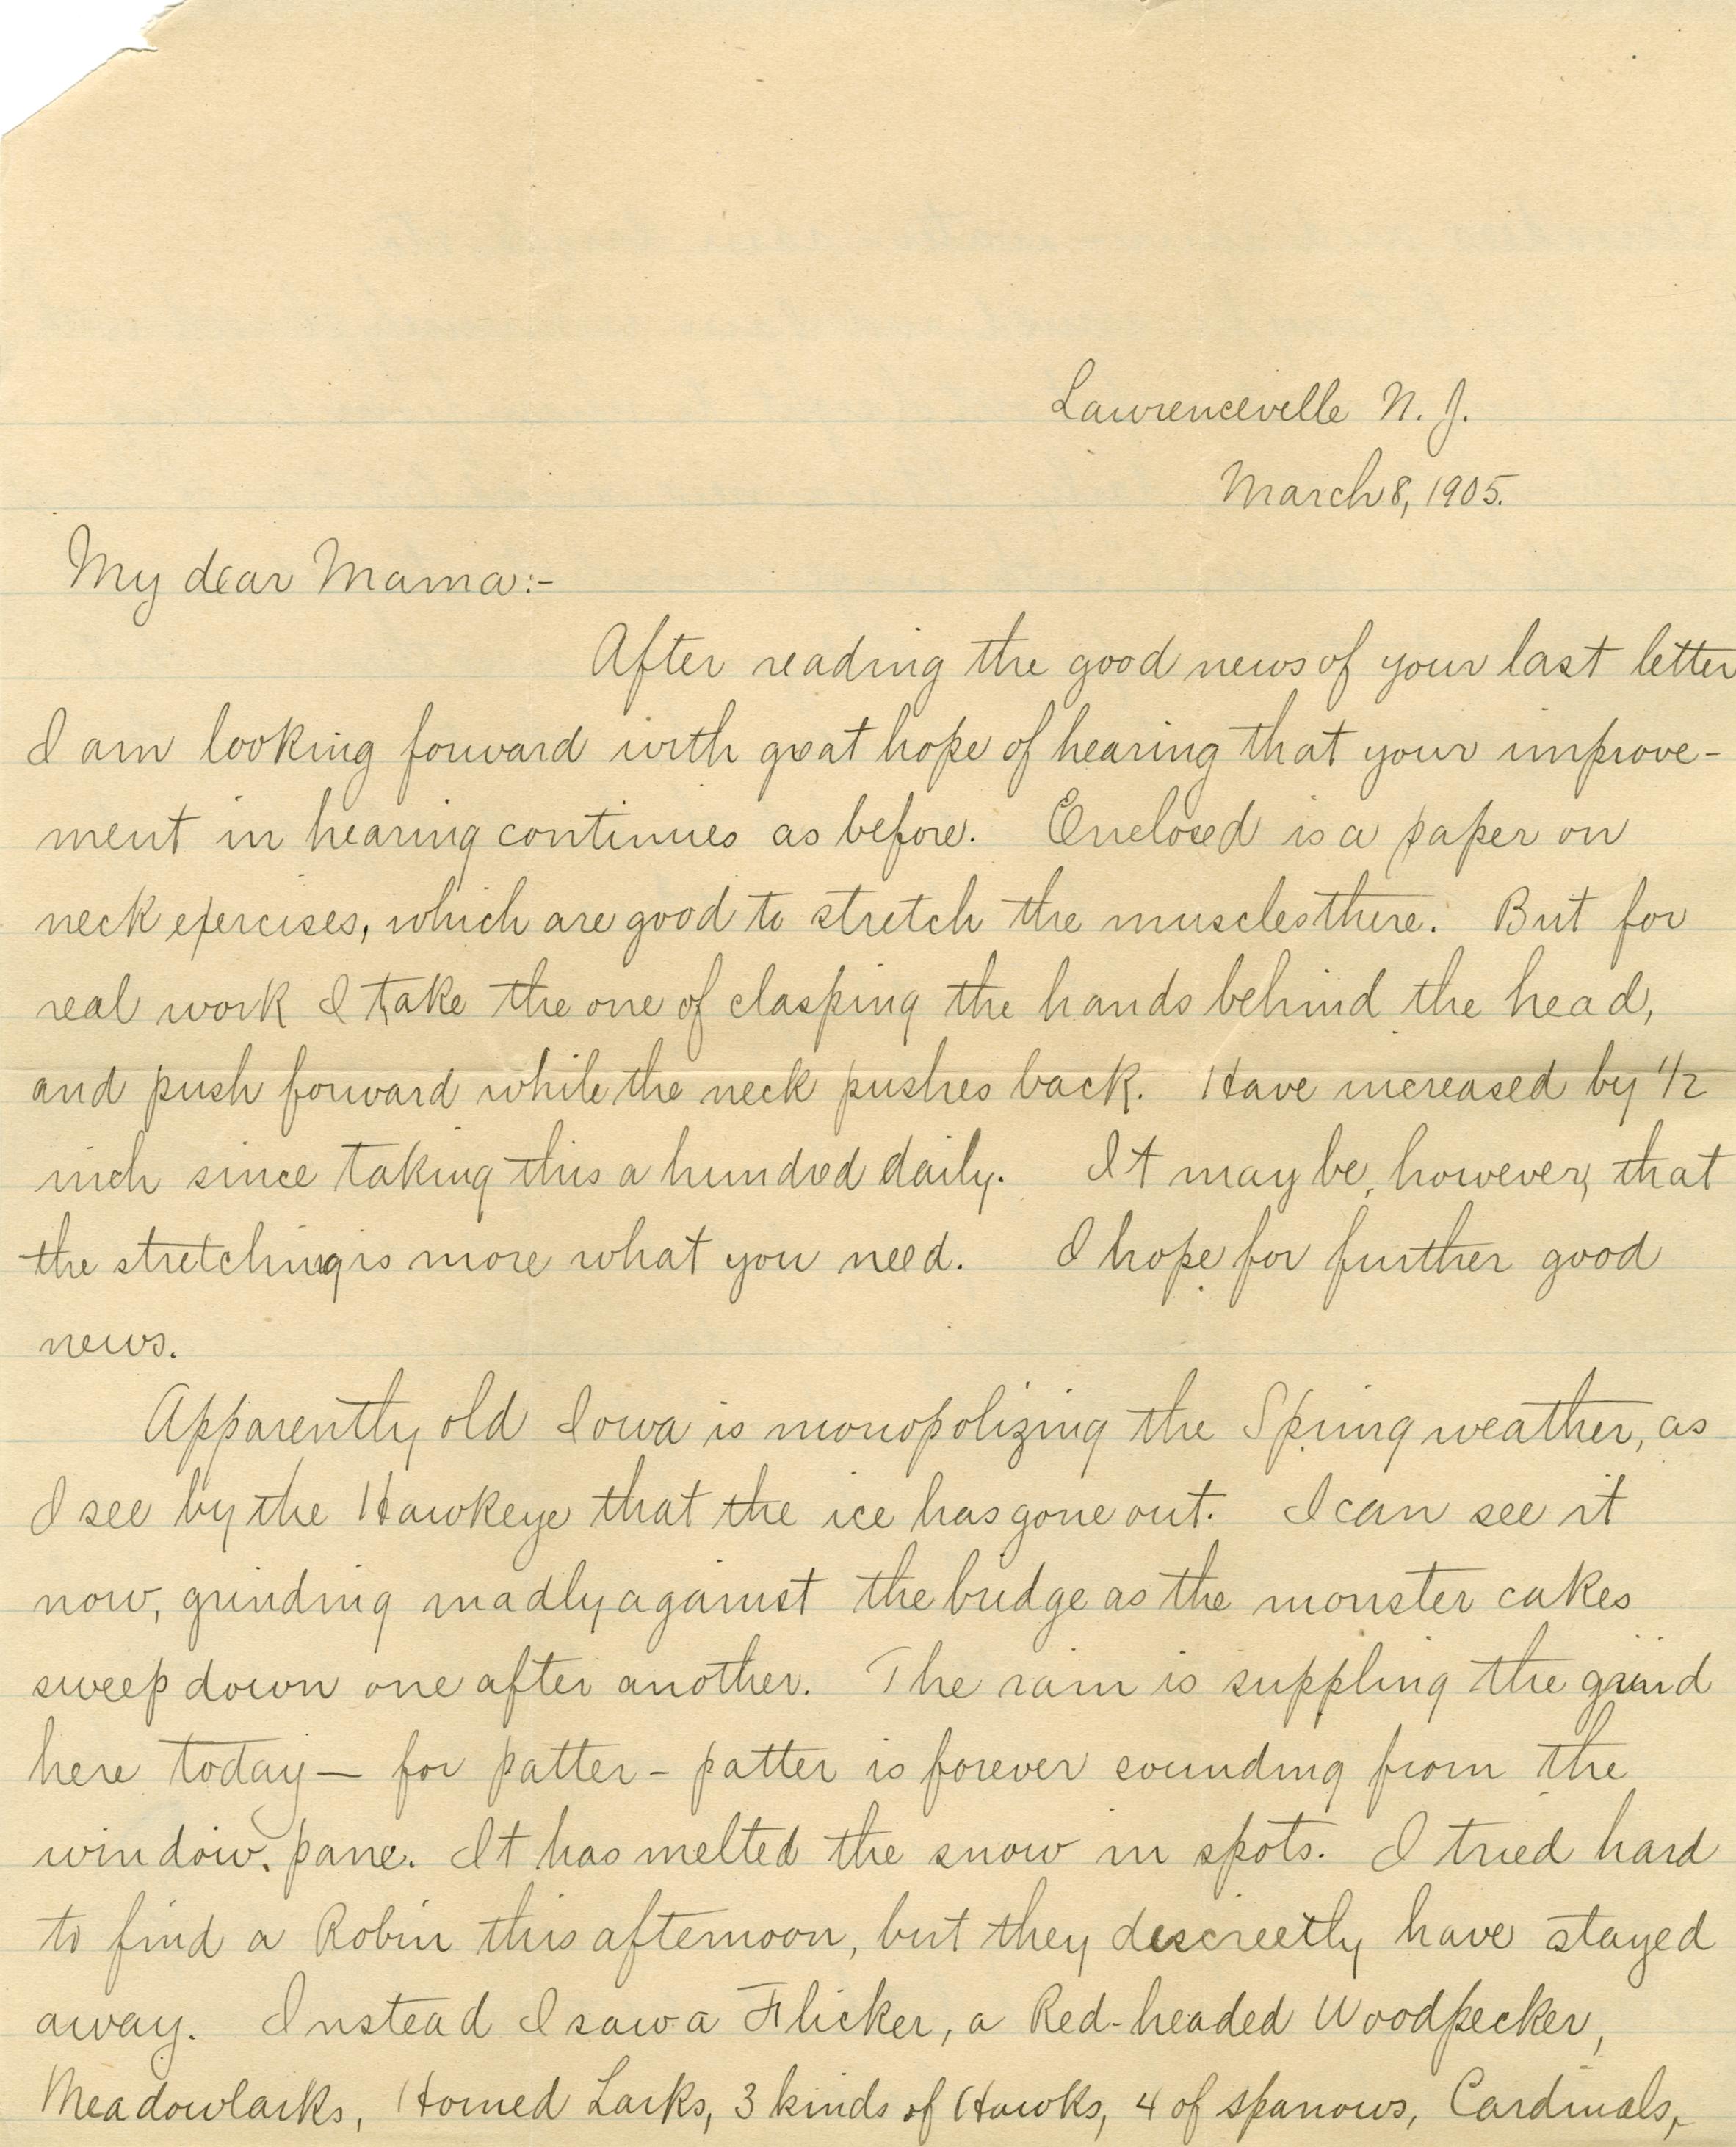 Lawrenceville N. J.
March 8, 1905.
My dear Mama:-
After reading the good news of your last letter
I am looking forward with great hope of hearing that your improve-
ment in hearing continues as before. Enclosed is a paper on
neck exercises, which are good to stretch the muscles there. But for
real work I take the one of clasping the hands behind the head,
and push forward while the neck pushes back. Have increased by 1/2
inch since taking this a hundred daily. It may be, however, that
the stretching is more what you need. I hope for further good
news.
Apparently old Iowa is monopolizing the Spring weather, as
I see by the Hawkeye that the ice has gone out. I can see it
now, grinding madly against the bridge as the monster cakes
sweep down one after another. The rain is suppling the grind
here today — for patter - patter is forever sounding from the
window. pane. It has melted the snow in spots. I tried hard
to find a Robin this afternoon, but they discreetly have stayed
away. Instead I saw a Flicker, a Red-headed Woodpecker,
Meadowlarks, Horned Larks, 3 kinds of Hawks, 4 of sparrows, Cardinals,